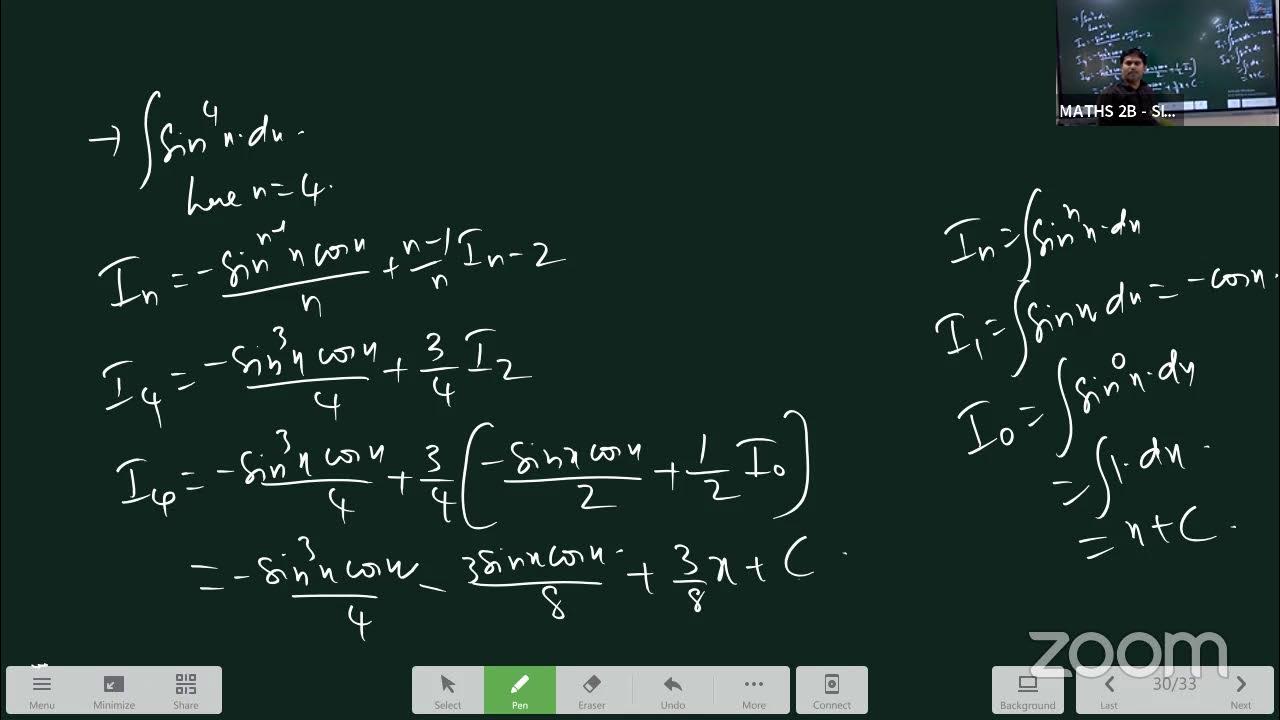 → ∫ sin⁴x·dx.
here n=4.
Iₙ = -sinⁿ⁻¹x cosx/n + n-1/n Iₙ-2
I₄ = -sin³x cosx/4 + 3/4 I₂
I₄ = -sin³x cosx/4 + 3/4 (-sinx cosx/2 + 1/2 I₀)
= -sin³x cosx/4 - 3sinx cosx/8 + 3/8 x + C
Iₙ = ∫ sinⁿx·dx
I₁ = ∫ sinx dx = -cosx.
I₀ = ∫ sin⁰x·dx
= ∫ 1·dx
= x + C.
MATHS 2B - SI...
zoom
Menu
Minimize
Share
Select
Pen
Eraser
Undo
More
Connect
Background
Last
30/33
Next